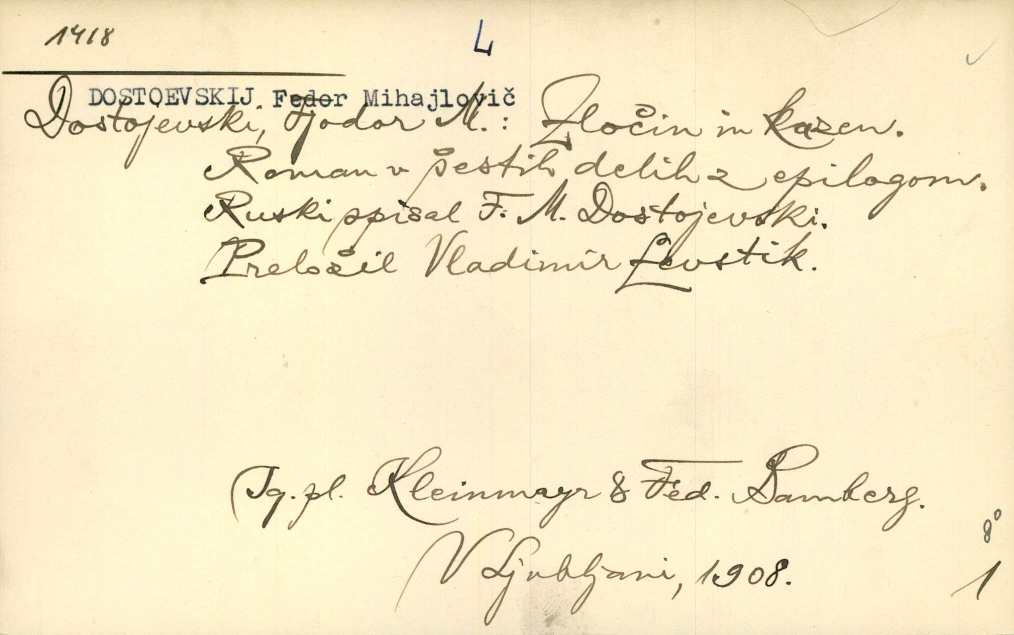 1418
L
DOSTOEVSKIJ Fedor Mihajlovič
Dostojevski, Fjodor M.: Zločin in kazen.
Roman v šestih delih z epilogom.
Ruski spisal F. M. Dostojevski.
Preložil Vladimir Levstik.
Ig. pl. Kleinmayr & Fed. Bamberg.
V Ljubljani, 1908.
8°
1